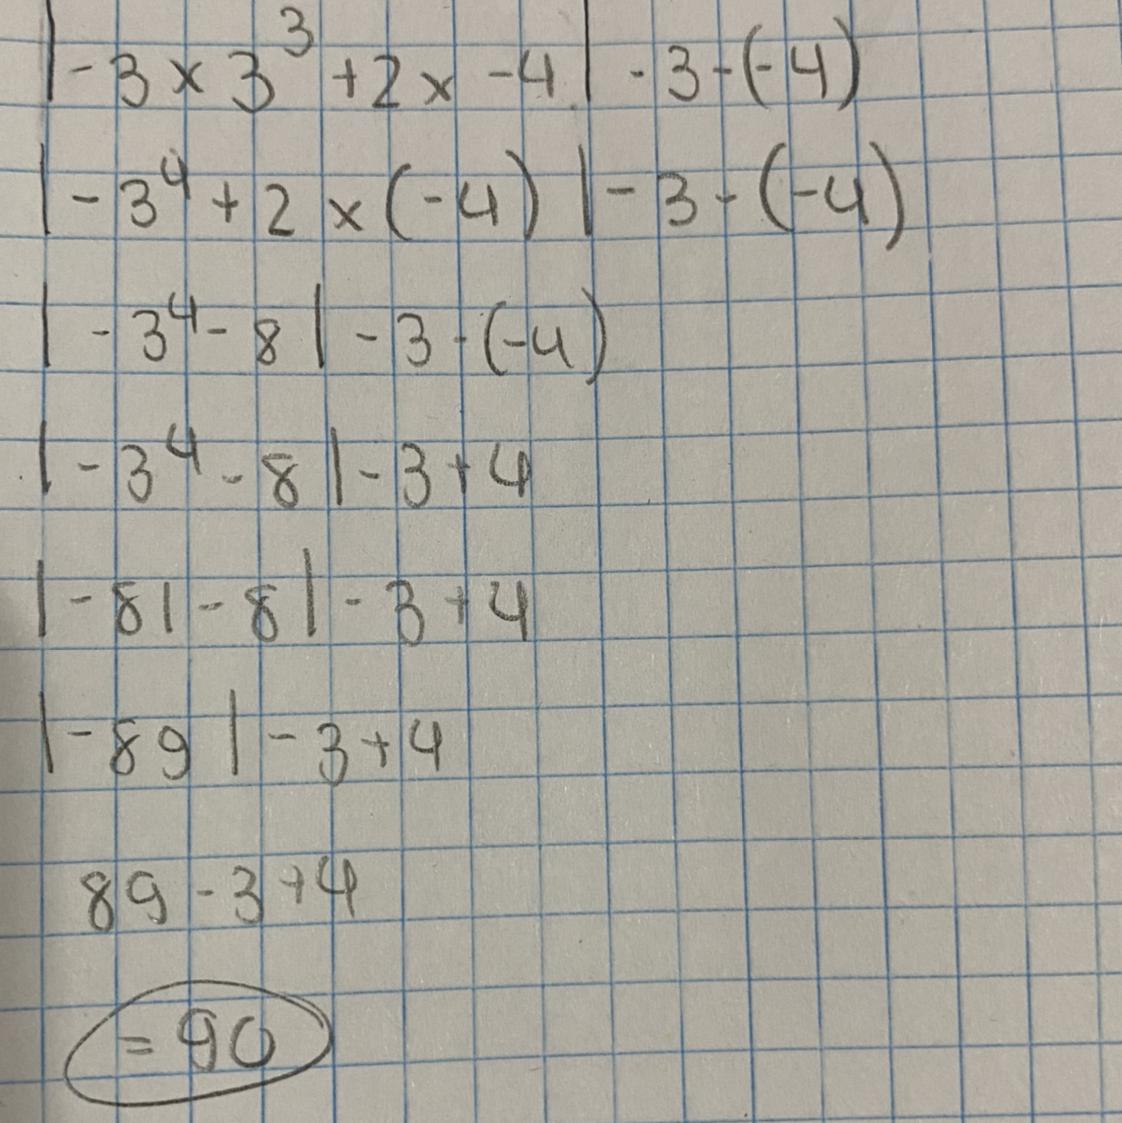 |-3 × 3³ + 2 × -4| - 3 - (-4)
|-3⁴ + 2 × (-4)| - 3 - (-4)
|-3⁴ - 8| - 3 - (-4)
|-3⁴ - 8| - 3 + 4
|-81 - 8| - 3 + 4
|-89| - 3 + 4
89 - 3 + 4
= 90